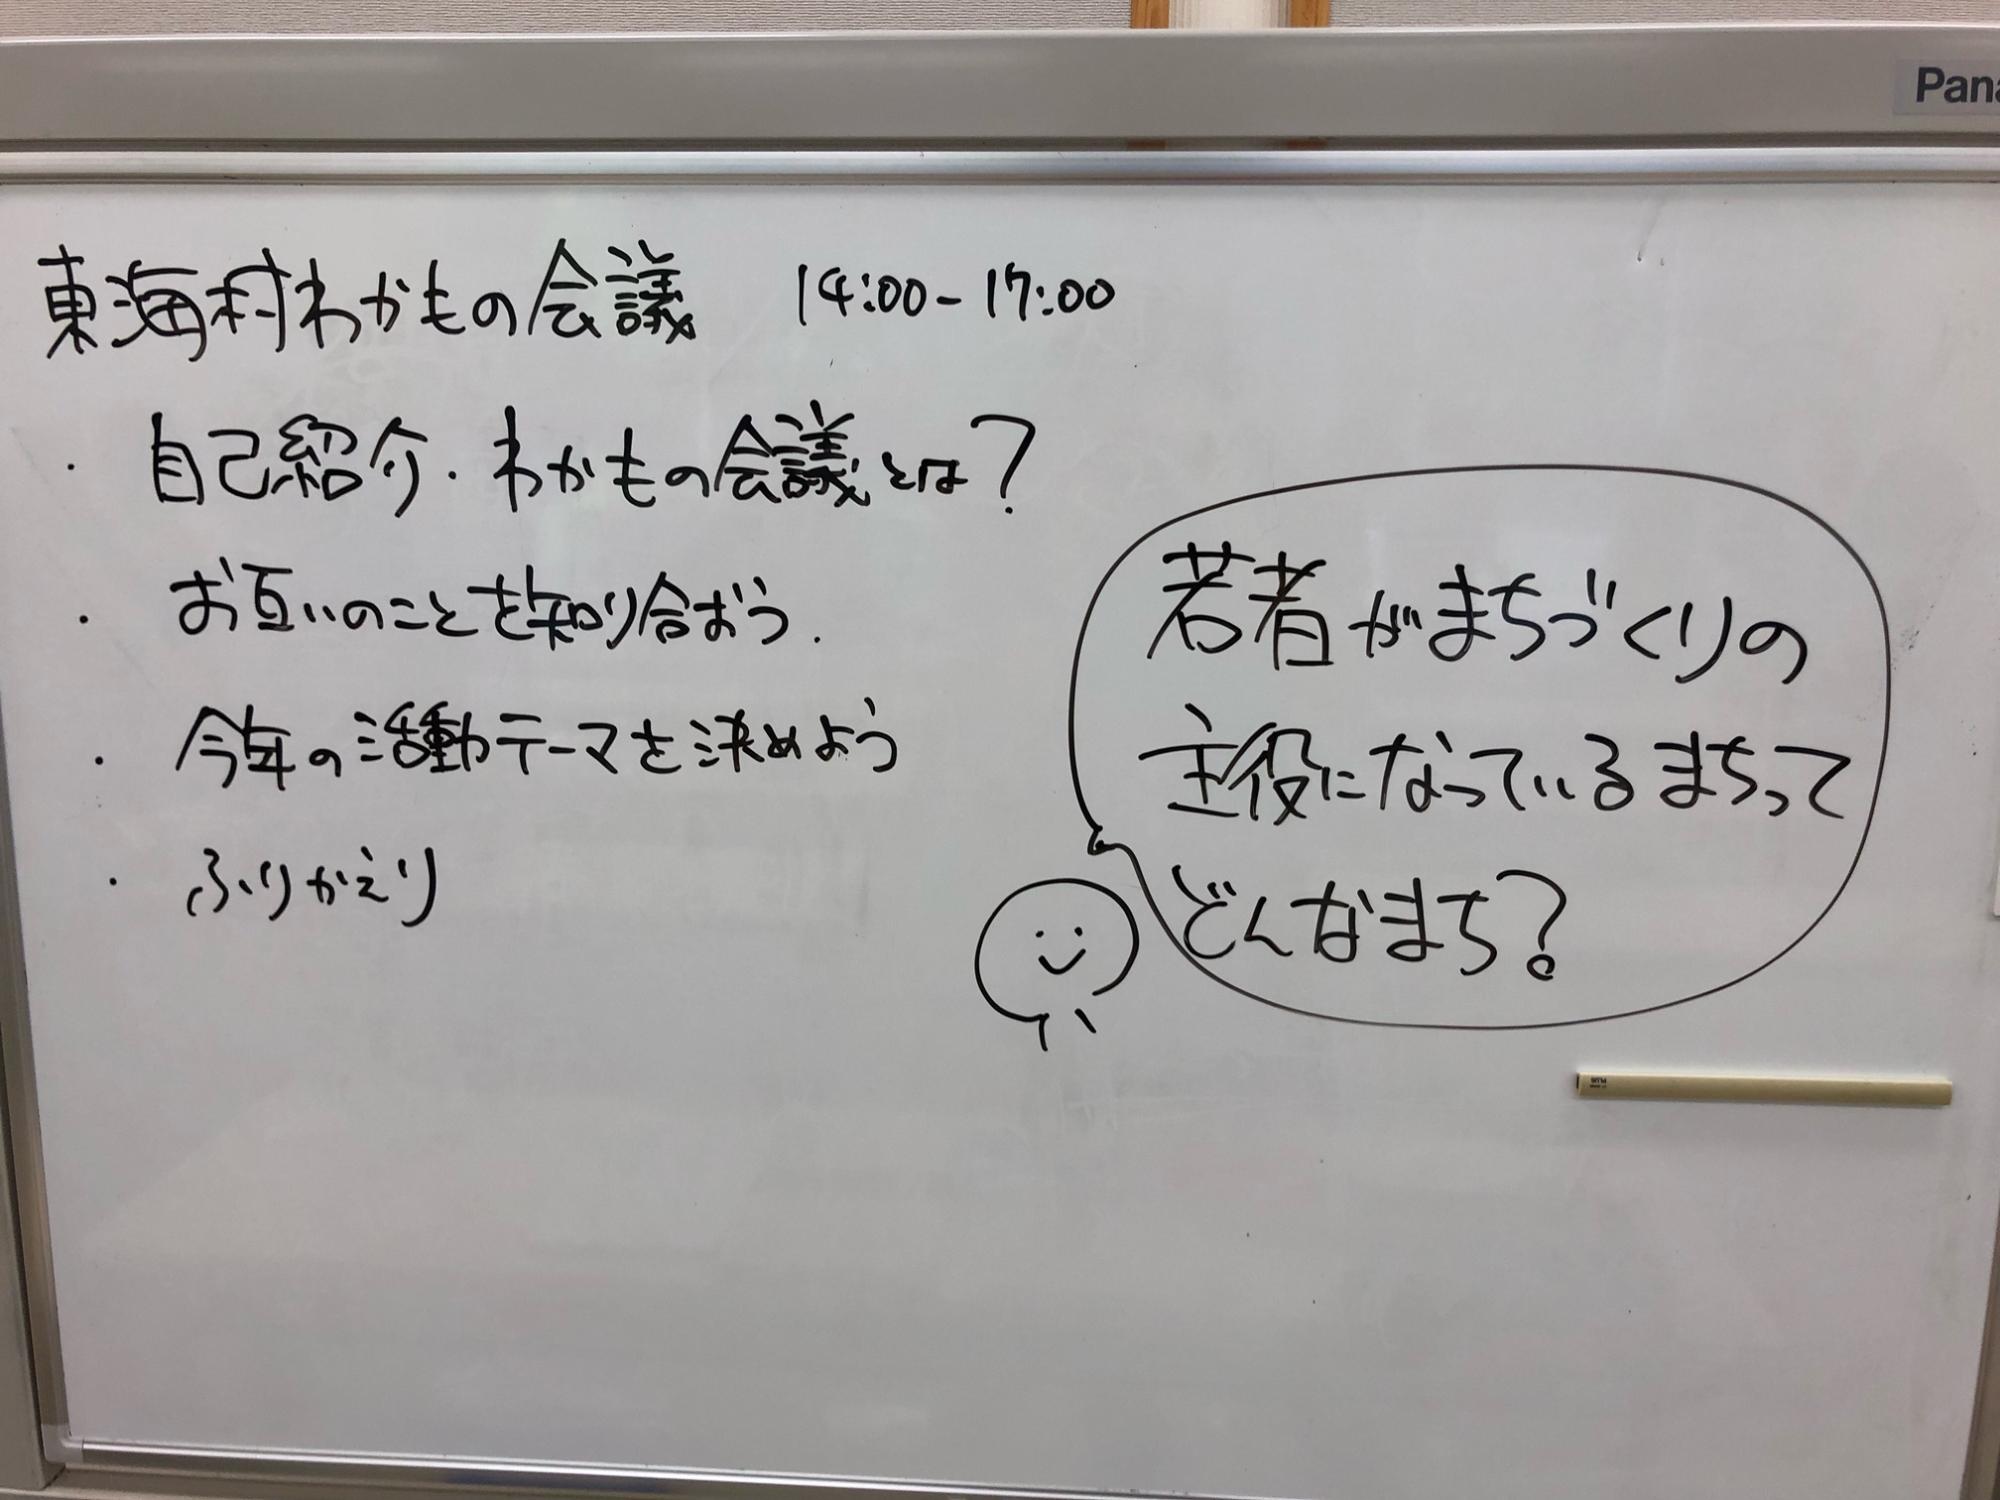 Pana
東海村わかもの会議 14:00-17:00
・自己紹介・わかもの会議とは?
・お互いのことを知り合おう.
・今年の活動テーマを決めよう
・ふりかえり
若者がまちづくりの
主役になっているまちって
どんなまち?